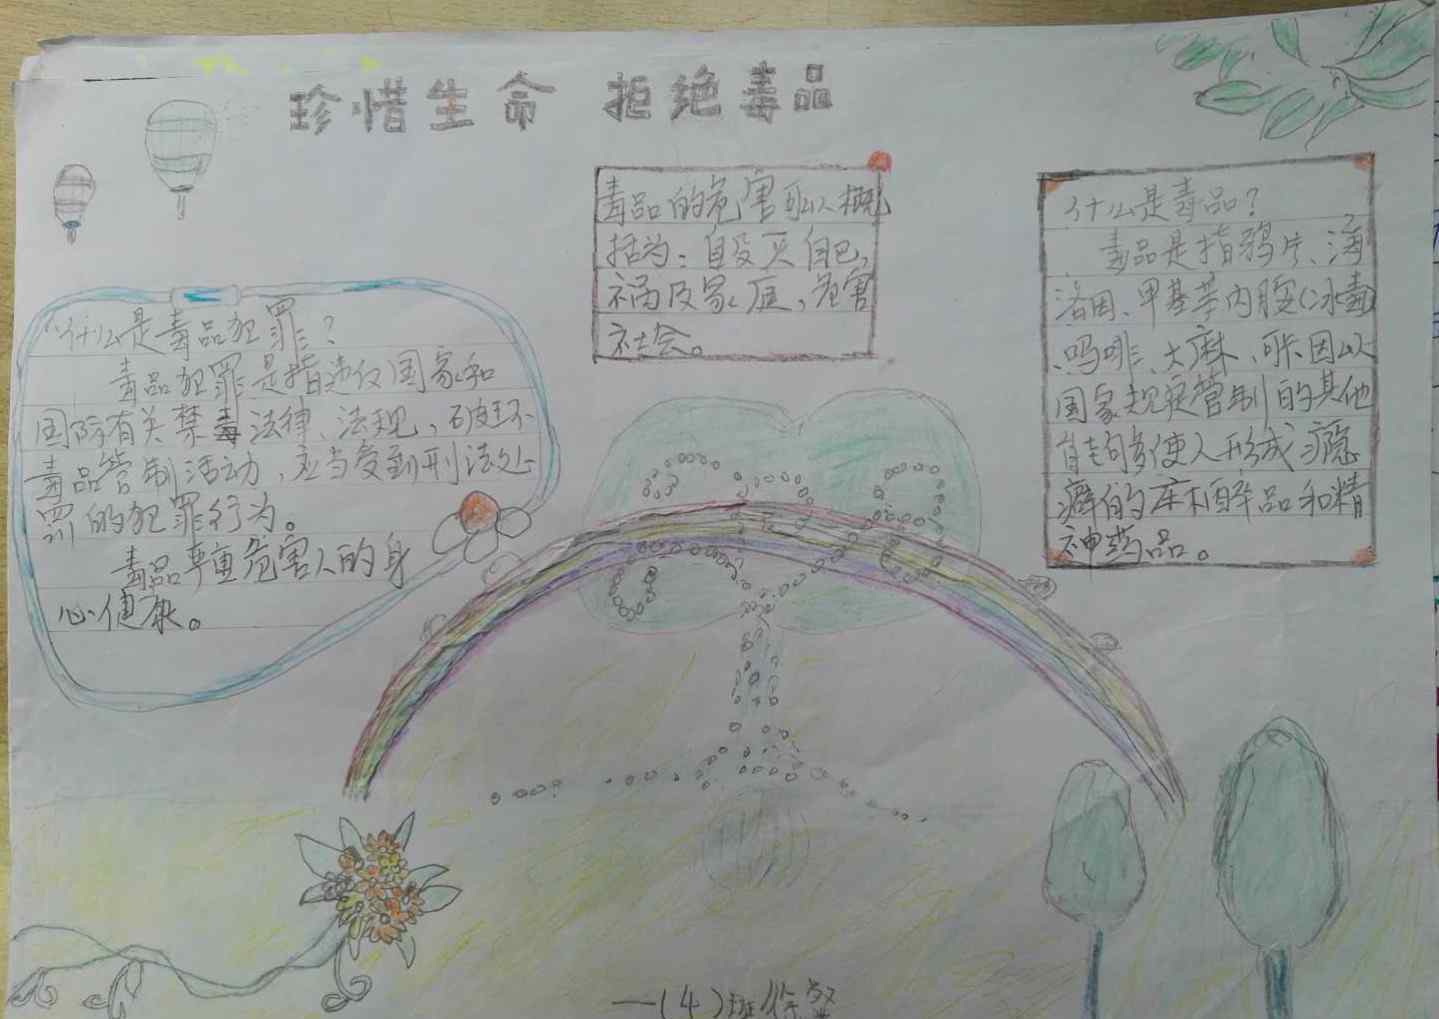 珍惜生命 拒绝毒品
什么是毒品犯罪?
毒品犯罪是指违反国家和
国际有关禁毒法律、法规,破坏
毒品管制活动,应当受到刑法处
罚的犯罪行为。
毒品严重危害人的身
心健康。
毒品的危害可以概
括为:自毁灭自己,
祸及家庭,危害
社会。
什么是毒品?
毒品是指鸦片、海
洛因、甲基苯丙胺(冰毒
、吗啡、大麻、可卡因以
国家规定管制的其他
能够使人形成瘾
癖的麻醉品和精
神药品。
一(4)班徐